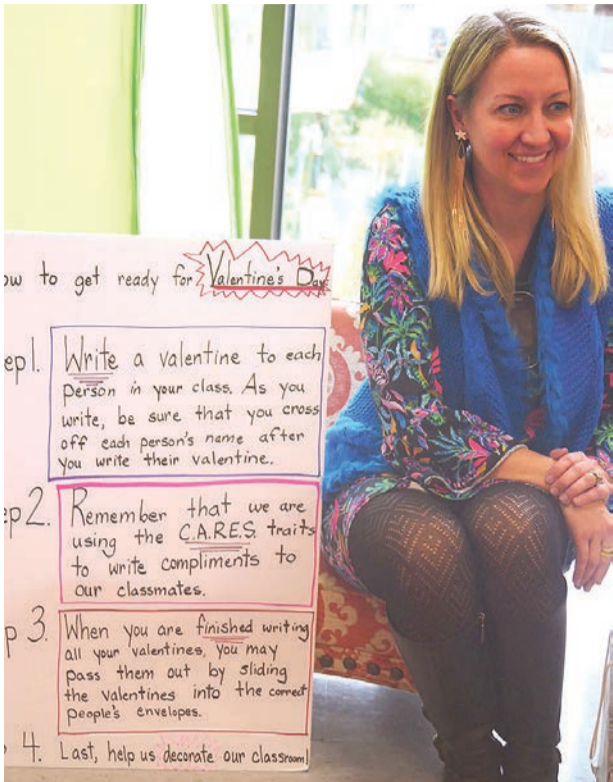 ow to get ready for Valentine's Day
ep 1. Write a valentine to each
person in your class. As you
write, be sure that you cross
off each person's name after
you write their valentine.
ep 2. Remember that we are
using the C.A.R.E.S. traits
to write compliments to
our classmates.
p 3. When you are finished writing
all your valentines, you may
pass them out by sliding
the valentines into the correct
people's envelopes.
4. Last, help us decorate our classroom!